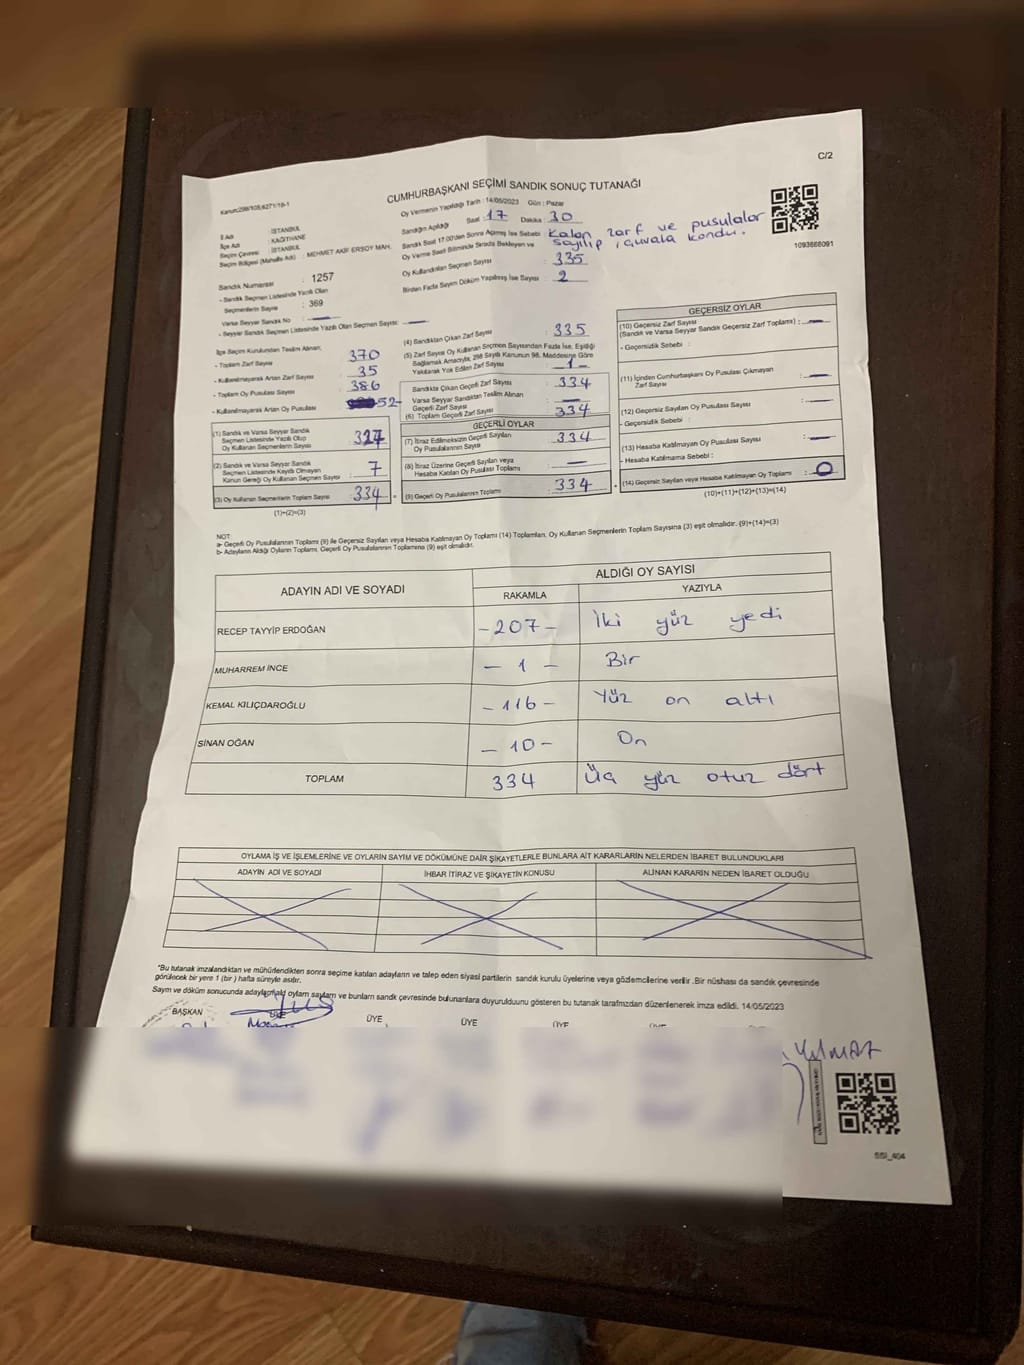 C/2
CUMHURBAŞKANI SEÇİMİ SANDIK SONUÇ TUTANAĞI
Kanun:298/105,6271/18-1
Oy Vermenin Yapıldığı Tarih : 14/05/2023 Gün : Pazar
Sandığın Açıldığı Saat 17 Dakika : 30
İl Adı : İSTANBUL
İlçe Adı : KAĞITHANE
Seçim Çevresi : İSTANBUL
Seçim Bölgesi (Mahalle Adı) : MEHMET AKİF ERSOY MAH.
Sandık Saat 17.00'den Sonra Açılmış İse Sebebi : Kalan zarf ve pusulalar
Oy Verme Saati Bitiminde Sırada Bekleyen ve sayılıp çuvala kondu.
Oy Kullandırılan Seçmen Sayısı : 335
Birden Fazla Sayım Döküm Yapılmış İse Sayısı : 2
1093668091
Sandık Numarası : 1257
- Sandık Seçmen Listesinde Yazılı Olan
Seçmenlerin Sayısı : 369
Varsa Seyyar Sandık No :
- Seyyar Sandık Seçmen Listesinde Yazılı Olan Seçmen Sayısı:
İlçe Seçim Kurulundan Teslim Alınan;
- Toplam Zarf Sayısı : 370
- Kullanılmayarak Artan Zarf Sayısı : 35
- Toplam Oy Pusulası Sayısı : 386
- Kullanılmayarak Artan Oy Pusulası : 52
(1) Sandık ve Varsa Seyyar Sandık
Seçmen Listesinde Yazılı Olup
Oy Kullanan Seçmenlerin Sayısı : 327
(2) Sandık ve Varsa Seyyar Sandık
Seçmen Listesinde Kayıtlı Olmayan
Kanun Gereği Oy Kullanan Seçmen Sayısı : 7
(3) Oy Kullanan Seçmenlerin Toplam Sayısı : 334
(1)+(2)=(3)
(4) Sandıktan Çıkan Zarf Sayısı : 335
(5) Zarf Sayısı Oy Kullanan Seçmen Sayısından Fazla İse, Eşitliği
Sağlamak Amacıyla, 298 Sayılı Kanunun 98. Maddesine Göre
Yakılarak Yok Edilen Zarf Sayısı : -1-
Sandıkta Çıkan Geçerli Zarf Sayısı : 334
Varsa Seyyar Sandıktan Teslim Alınan
Geçerli Zarf Sayısı :
(6) Toplam Geçerli Zarf Sayısı : 334
GEÇERLİ OYLAR
(7) İtiraz Edilmeksizin Geçerli Sayılan
Oy Pusulalarının Sayısı : 334
(8) İtiraz Üzerine Geçerli Sayılan veya
Hesaba Katılan Oy Pusulası Toplamı :
(9) Geçerli Oy Pusulalarının Toplamı : 334
GEÇERSİZ OYLAR
(10) Geçersiz Zarf Sayısı
(Sandık ve Varsa Seyyar Sandık Geçersiz Zarf Toplamı) :
- Geçersizlik Sebebi :
(11) İçinden Cumhurbaşkanı Oy Pusulası Çıkmayan
Zarf Sayısı :
(12) Geçersiz Sayılan Oy Pusulası Sayısı :
- Geçersizlik Sebebi :
(13) Hesaba Katılmayan Oy Pusulası Sayısı :
- Hesaba Katılmama Sebebi :
(14) Geçersiz Sayılan veya Hesaba Katılmayan Oy Toplamı : 0
(10)+(11)+(12)+(13)=(14)
NOT
a- Geçerli Oy Pusulalarının Toplamı (9) ile Geçersiz Sayılan veya Hesaba Katılmayan Oy Toplamı (14) Toplamları, Oy Kullanan Seçmenlerin Toplam Sayısına (3) eşit olmalıdır. (9)+(14)=(3)
b- Adayların Aldığı Oyların Toplamı, Geçerli Oy Pusulalarının Toplamına (9) eşit olmalıdır.
ADAYIN ADI VE SOYADI
ALDIĞI OY SAYISI
RAKAMLA YAZIYLA
RECEP TAYYİP ERDOĞAN -207- İki yüz yedi
MUHARREM İNCE - 1 - Bir
KEMAL KILIÇDAROĞLU -116- Yüz on altı
SİNAN OĞAN - 10 - On
TOPLAM 334 Üç yüz otuz dört
OYLAMA İŞ VE İŞLEMLERİNE VE OYLARIN SAYIM VE DÖKÜMÜNE DAİR ŞİKAYETLERLE BUNLARA AİT KARARLARIN NELERDEN İBARET BULUNDUKLARI
ADAYIN ADI VE SOYADI İHBAR İTİRAZ VE ŞİKAYETİN KONUSU ALINAN KARARIN NEDEN İBARET OLDUĞU
*Bu tutanak imzalandıktan ve mühürlendikten sonra seçime katılan adayların ve talep eden siyasi partilerin sandık kurulu üyelerine veya gözlemcilerine verilir. Bir nüshası da sandık çevresinde
görülecek bir yere 1 (bir) hafta süreyle asılır.
Sayım ve döküm sonucunda adayların aldığı oyların sayılarını ve bunların sandık çevresinde bulunanlara duyurulduğunu gösteren bu tutanak tarafımızdan düzenlenerek imza edildi. 14/05/2023
BAŞKAN ÜYE ÜYE ÜYE ÜYE
YILMAZ
SSİ_404